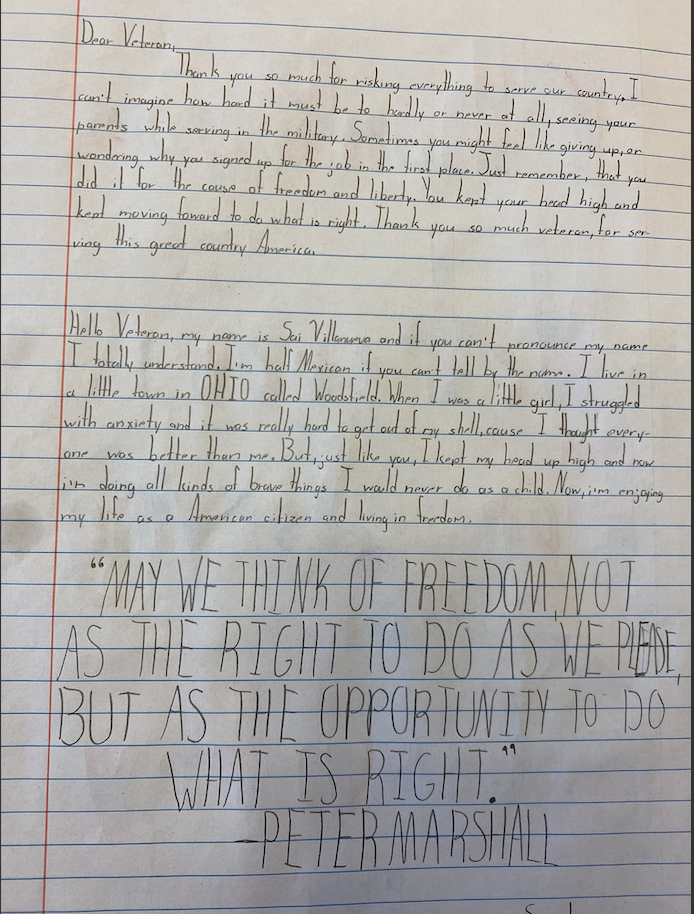 Dear Veteran,
Thank you so much for risking everything to serve our country, I
can't imagine how hard it must be to hardly or never at all, seeing your
parents while serving in the military. Sometimes you might feel like giving up, or
wondering why you signed up for the job in the first place. Just remember, that you
did it for the cause of freedom and liberty. You kept your head high and
kept moving foward to do what is right. Thank you so much veteran, for ser-
ving this great country America.
Hello Veteran, my name is Sai Villanueva and if you can't pronounce my name
I totally understand. I'm half Mexican if you can't tell by the name. I live in
a little town in OHIO called Woodsfield. When I was a little girl, I struggled
with anxiety and it was really hard to get out of my shell, cause I thought every-
one was better than me. But, just like you, I kept my head up high and now
i'm doing all kinds of brave things I would never do as a child. Now, i'm enjoying
my life as a American citizen and living in freedom.
"MAY WE THINK OF FREEDOM, NOT
AS THE RIGHT TO DO AS WE PLEASE,
BUT AS THE OPPORTUNITY TO DO
WHAT IS RIGHT."
-PETER MARSHALL